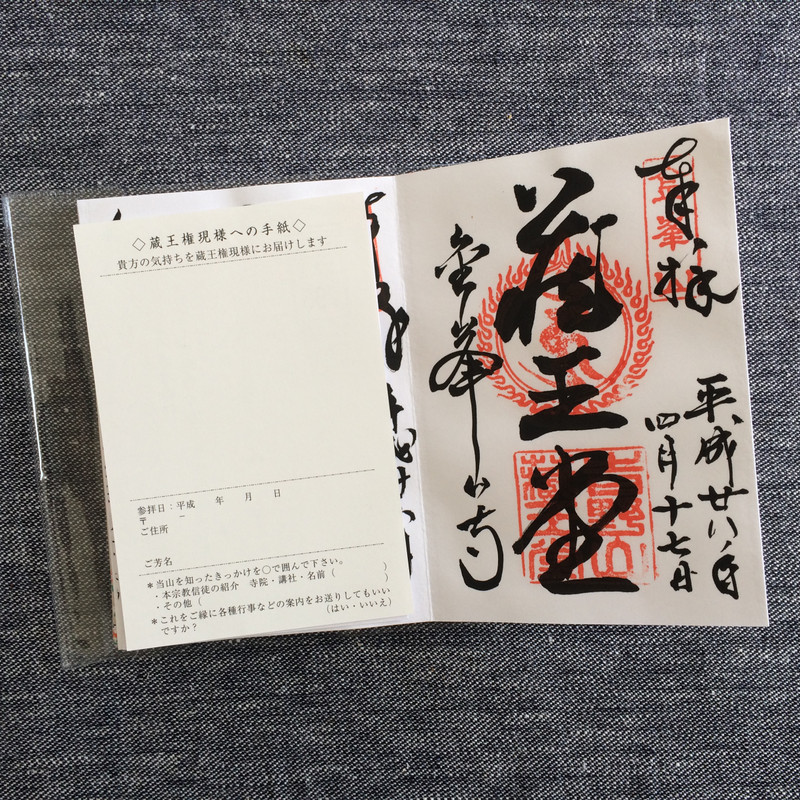 ◇蔵王権現様への手紙◇
貴方の気持ちを蔵王権現様にお届けします
参拝日:平成　年　月　日
〒　－
ご住所
ご芳名
＊当山を知ったきっかけを○で囲んで下さい。
・本宗教信徒の紹介　寺院・講社・名前（　）
・その他（　）
＊これをご縁に各種行事などの案内をお送りしてもいい
ですか？　（はい・いいえ）
奉拝
平成廿八年
四月十七日
蔵王堂
金峯山寺